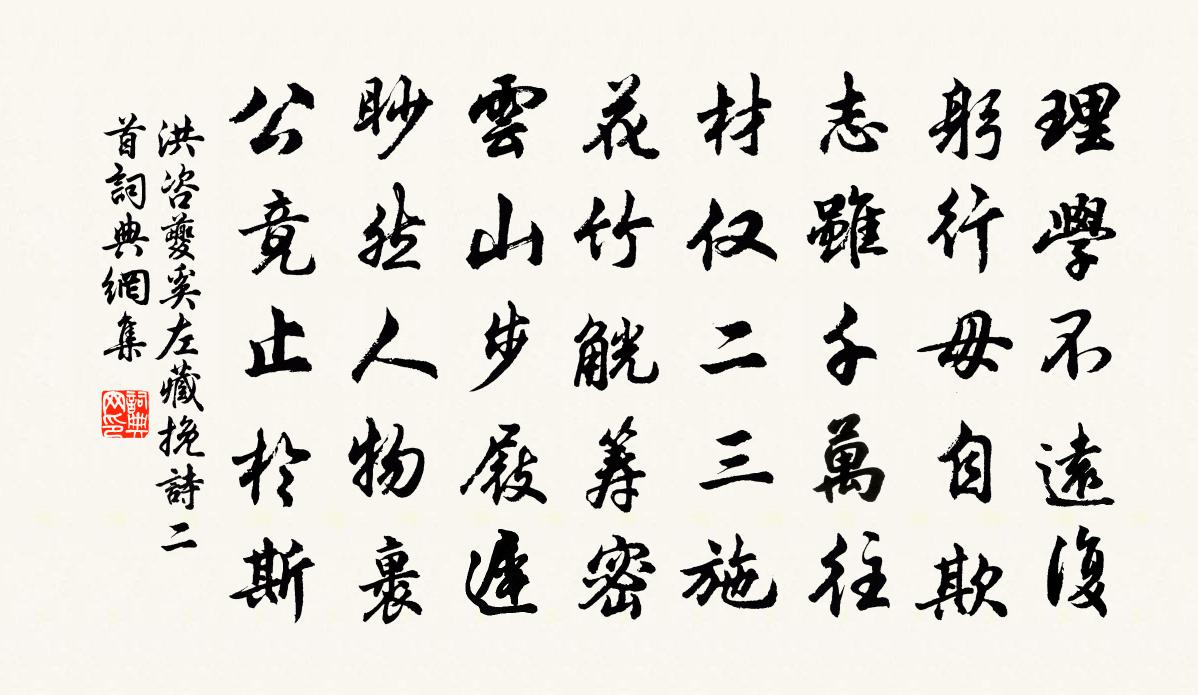 理學不遠復
躬行毋自欺
志雖千萬往
材仅二三施
花竹觥筹密
雲山步屐遲
眇然人物裏
公竟止於斯
洪咨夔奚左藏挽詩二
首詞典網集
詞典
网印